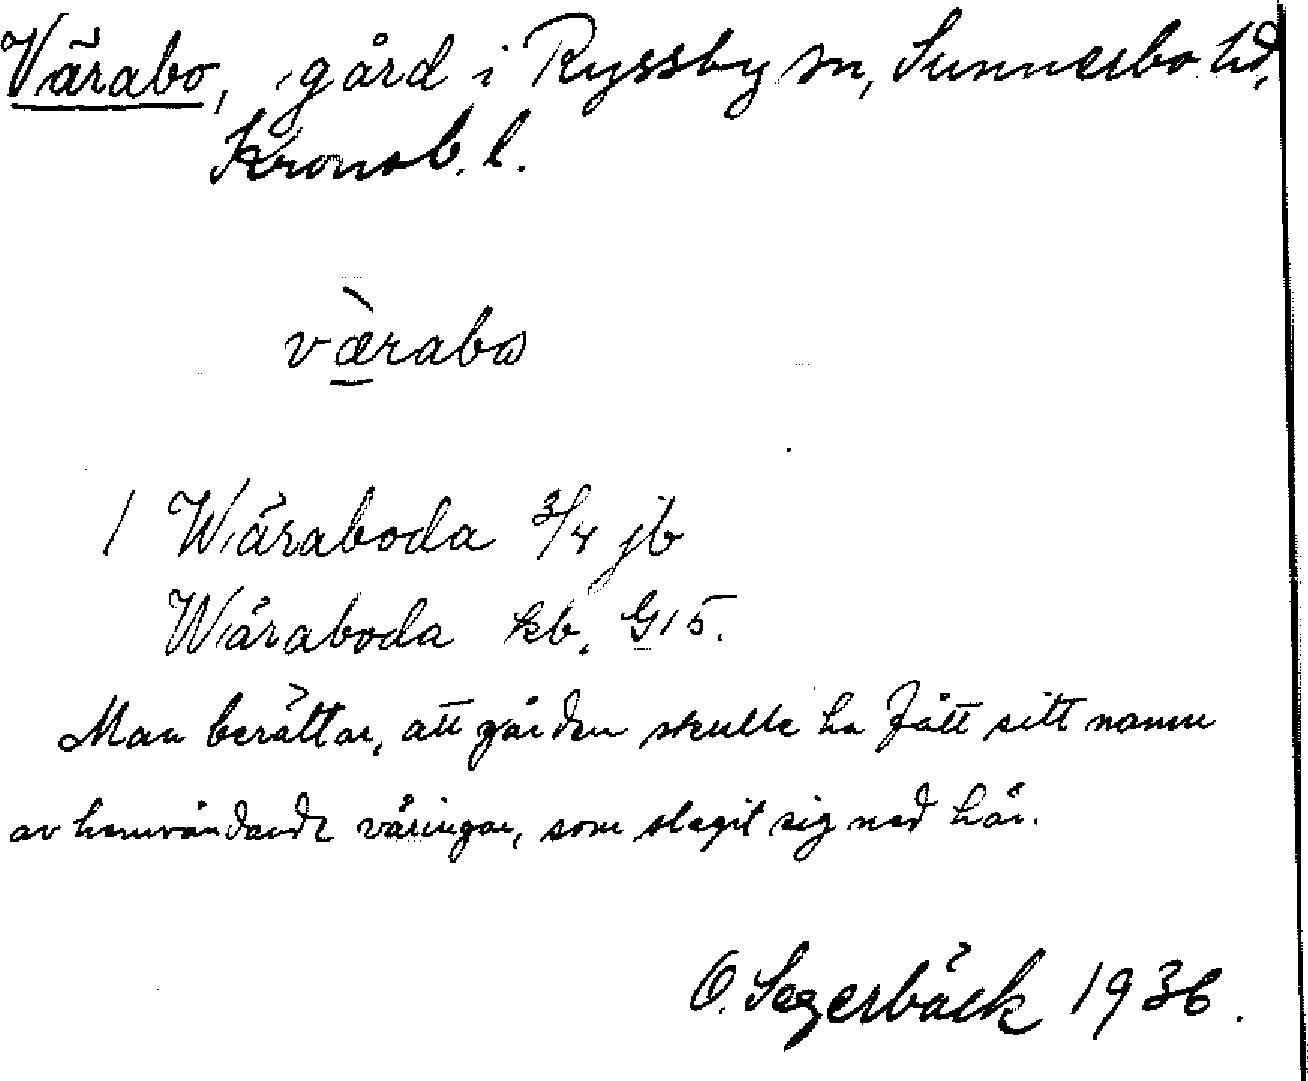 Värabo, gård i Ryssby sn, Sunnerbo hd,
Kronob. l.
væ̀rabω
1 Wäraboda 3/4 jb
Wäraboda kb. G15.
Man berättar, att gården skulle ha fått sitt namn
av hemvändande väringar, som slagit sig ned här.
O. Segerbäck 1936.